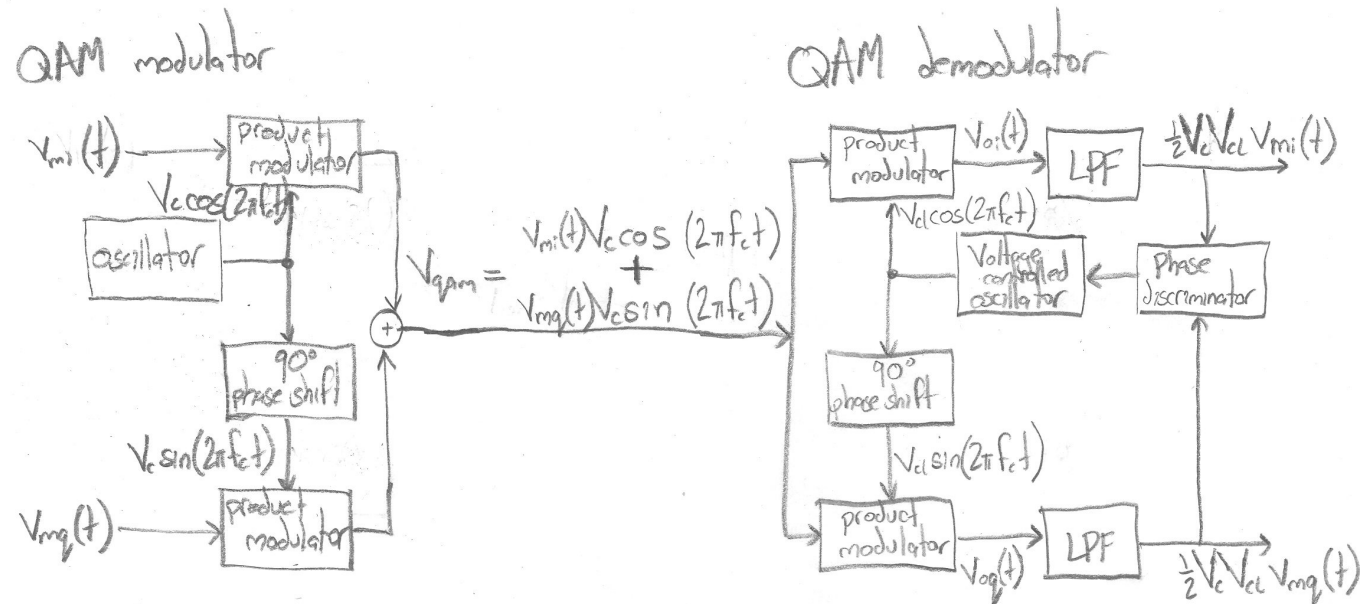 QAM modulator
V_mi(t)
product
modulator
V_c cos(2πf_c t)
oscillator
90°
phase shift
V_c sin(2πf_c t)
V_mq(t)
product
modulator
+
V_QAM =
V_mi(t)V_c cos (2πf_c t)
+
V_mq(t)V_c sin (2πf_c t)
QAM demodulator
product
modulator
V_oi(t)
LPF
½V_cV_cl V_mi(t)
V_cl cos(2πf_c t)
Voltage
controlled
oscillator
Phase
discriminator
90°
phase shift
V_cl sin(2πf_c t)
product
modulator
V_oq(t)
LPF
½V_cV_cl V_mq(t)